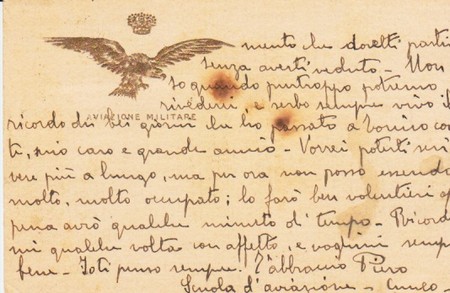 mento che dovetti parti
senza averti veduto - Non
so quando purtroppo potremo
rivederci, e serbo sempre vivo il
AVIAZIONE MILITARE
ricordo dei bei giorni che ho passato a con
te, mio caro e grande amico - Vorrei poterti scri
vere più a lungo, ma per ora non posso essendo
molto, molto occupato; lo farò ben volentieri ap
pena avrò qualche minuto di tempo - Ricorda
mi qualche volta con affetto, e voglimi sempre
bene - Io ti penso sempre. T'abbraccio Piero
Scuola d'aviazione - Cuneo -